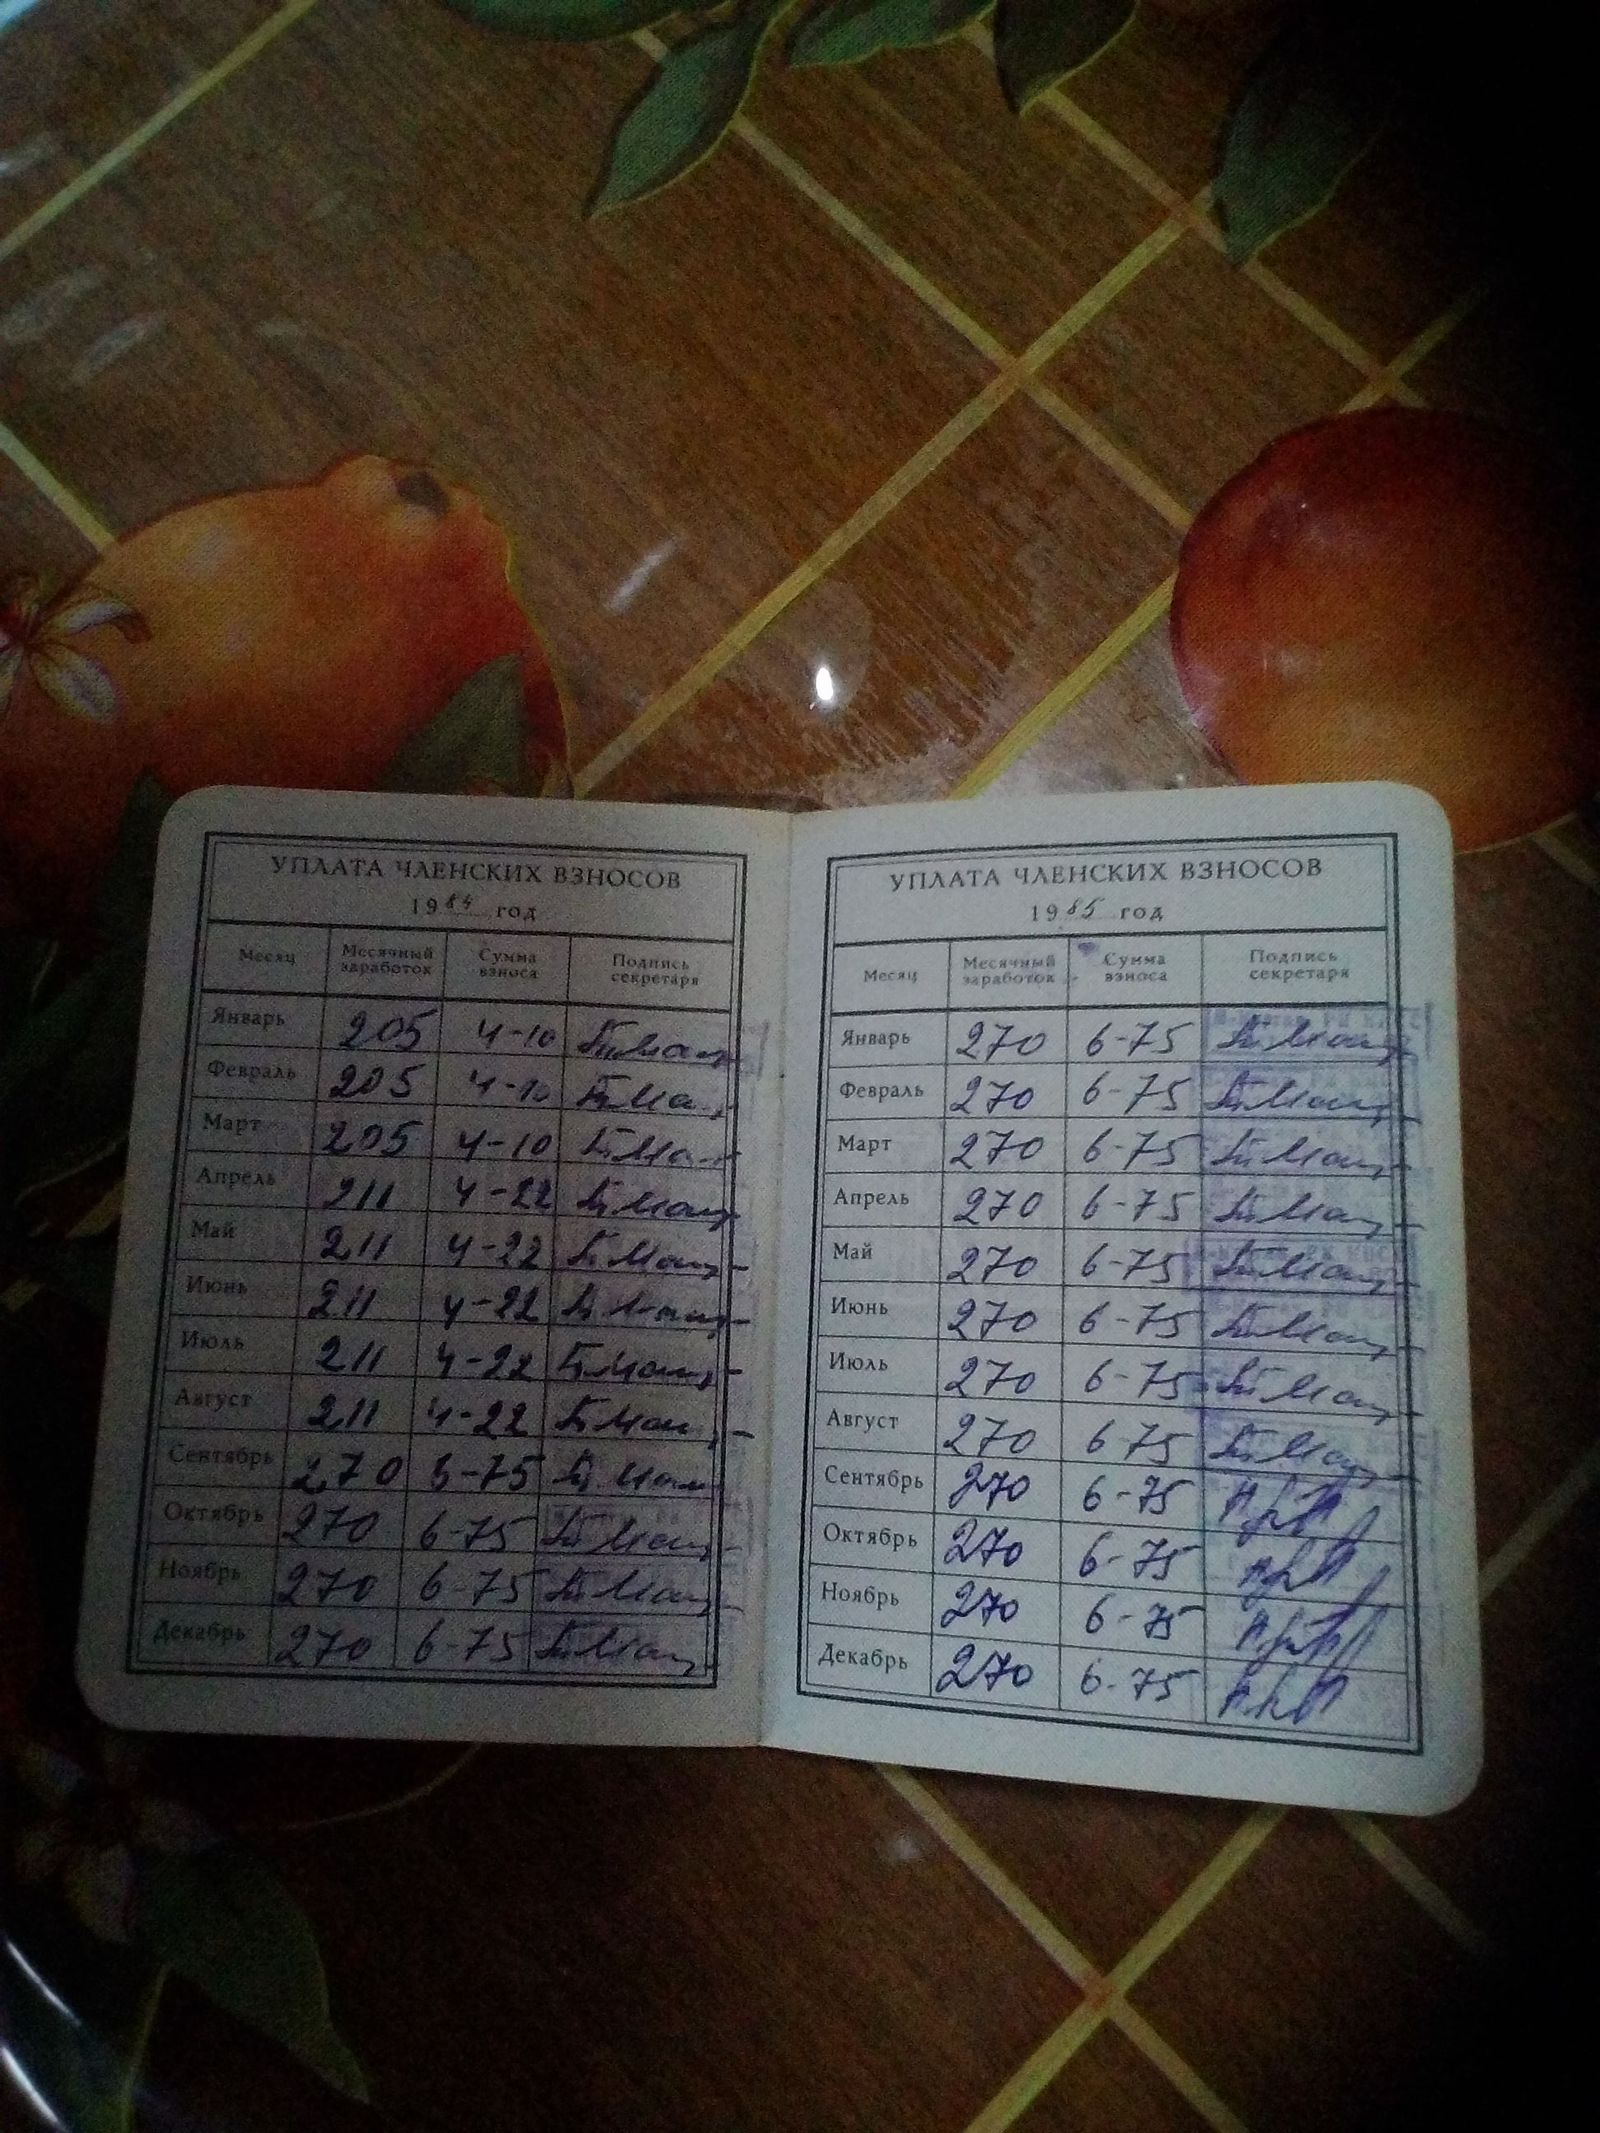 УПЛАТА ЧЛЕНСКИХ ВЗНОСОВ
1984 год
Месяц Месячный заработок Сумма взноса Подпись секретаря
Январь 205 4-10
Февраль 205 4-10
Март 205 4-10
Апрель 211 4-22
Май 211 4-22
Июнь 211 4-22
Июль 211 4-22
Август 211 4-22
Сентябрь 270 -75
Октябрь 270 6-75
Ноябрь 270 6-75
Декабрь 270 6-75
УПЛАТА ЧЛЕНСКИХ ВЗНОСОВ
1985 год
Месяц Месячный заработок Сумма взноса Подпись секретаря
Январь 270 6-75
Февраль 270 6-75
Март 270 6-75
Апрель 270 6-75
Май 270 6-75
Июнь 270 6-75
Июль 270 6-75
Август 270 6 75
Сентябрь 270 6-75
Октябрь 270 6-75
Ноябрь 270 6-75
Декабрь 270 6-75